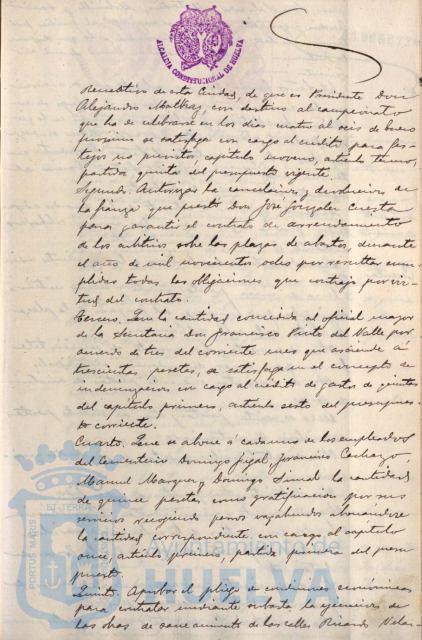 ALCALDIA CONSTITUCIONAL DE HUELVA
Recreativo de esta Ciudad, de que es Presidente Don
Alejandro con destino al campeonato
que ha de celebrarse en los dias cuatro al seis de Enero
proximo se satisfaga con cargo al credito para fes-
tejos no previstos, capitulo noveno, articulo tercero,
partida quinta del presupuesto vigente.
Segundo. Autorizar la cancelacion y devolucion de
la fianza que prestó Don José Gonzalez Cuesta
para garantir el contrato de arrendamiento
de los arbitrios sobre las plazas de abastos, durante
el año de mil novecientos ocho por resultar cum-
plidas todas las obligaciones que contrajo por vir-
tud del contrato.
Tercero. Que la cantidad concedida al oficial mayor
de la Secretaria Don Francisco Prieto del Valle por
acuerdo de tres del corriente mes que asciende á
trescientas pesetas, se satisfaga en el concepto de
indemnizacion con cargo al credito de gastos de quintas
del capitulo primero, articulo sesto del presupues-
to corriente.
Cuarto. Que se abone á cada uno de los empleados
del Cementerio Domingo Francisco
Manuel Marquez y Domingo la cantidad
de quince pesetas como gratificacion por sus
servicios recogiendo perros vagabundos abonandose
la cantidad correspondiente con cargo al capitulo
once, articulo primero, partida primera del presu-
puesto.
Quinto. Aprobar el pliego de condiciones económicas
para contratar mediante subasta la ejecucion de
las obras de saneamiento de las calles Ricardo Velaz-
PORTUS MARIS ET TERRAE
Ayuntamiento de
HUELVA